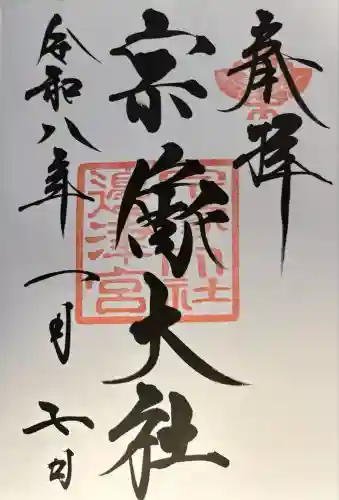 奉拝
宗像大社
令和八年一月子日
宗像大社
邊津宮